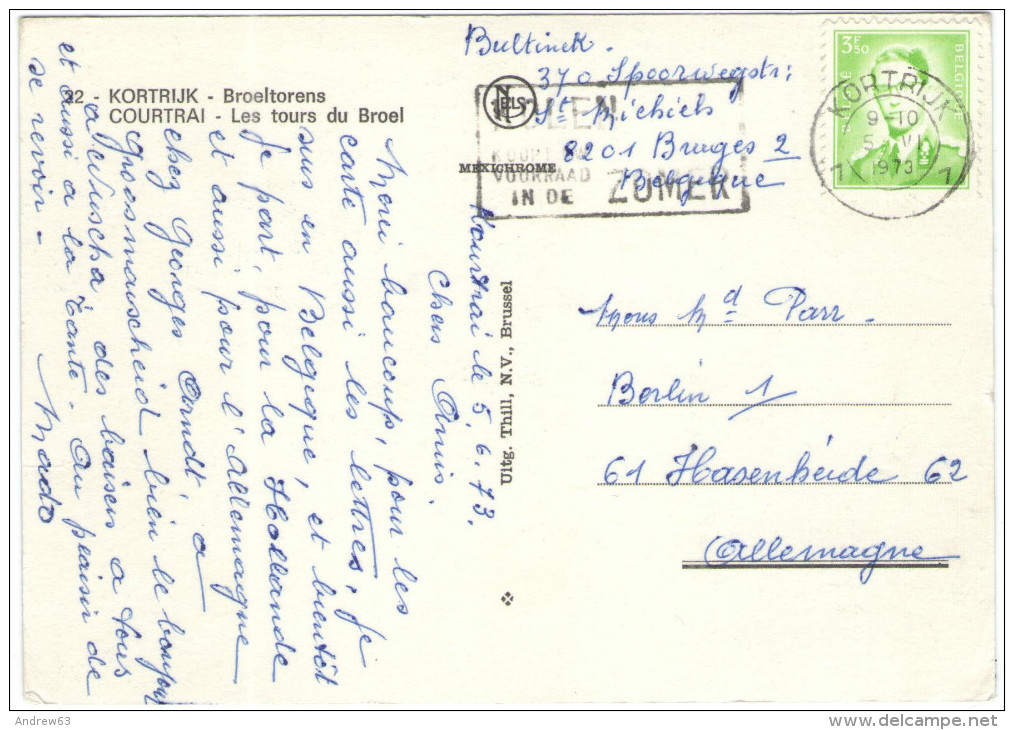 32 - KORTRIJK - Broeltorens
COURTRAI - Les tours du Broel
NELS
MEXICHROME
Uitg. Thill, N.V., Brussel
Bultinck.
370 Spoorwegstr;
St Michiels
8201 Bruges 2
Belgique
KOLEN
VOORRAAD
IN DE ZOMER
3F50
BELGIE
BELGIQUE
KORTRIJK
9-10
5 VI
1973
1 1
Kourtrai le 5.6.73.
Chers Amis,
Merci beaucoup, pour les
carte aussi les lettres, je
suis en Belgique, et bientôt
je part, pour la Hollande
et aussi pour l'Allemagne
chez Georges Arndt, a
Grosmauscheid bien le bonjour
a des baisers a tous
et aussi a la Tante. Au plaisir de
se revoir -
Mado
Mons Md Parr -
Berlin 1
61 Hasenheide 62
Allemagne
Andrew63
www.delcampe.net